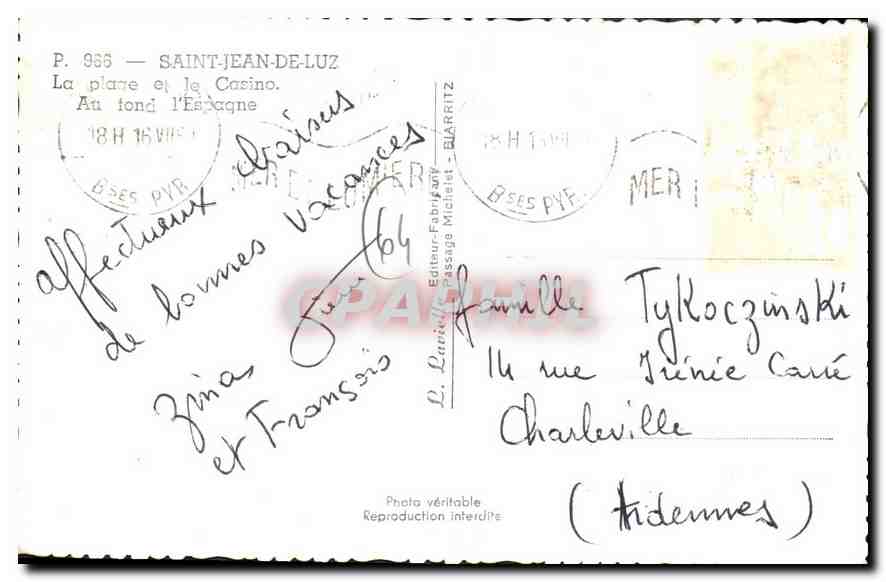 P. 966 — SAINT-JEAN-DE-LUZ
La plage et le Casino.
Au fond l'Espagne
18H 16 VII
Bses PYR.
18H 1
Bses PYR.
MER
MER
affectueux baisers
de bonnes vacances
64
Zinas
et François
L. Lavielle Editeur-Fabricant
Passage Michelet - BIARRITZ
CPAPHIL
famille Tykoczinski
14 rue Irénée Carré
Charleville
(Ardennes)
Photo véritable
Reproduction interdite